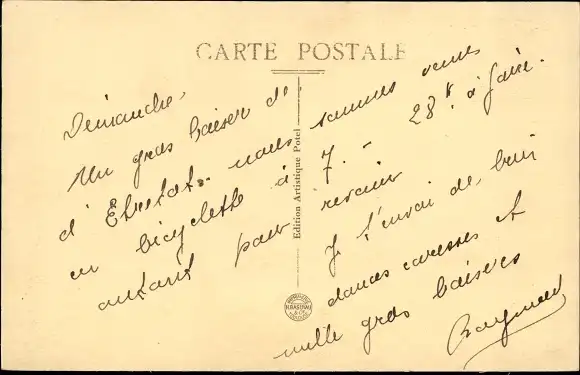 CARTE POSTALE
Dimanche,
Un gros baiser de
d'Etretat. nous sommes venus
en bicyclette à 7. - 28 k. à faire.
autant pour revenir
Je t'envoi de bien
douces caresses et
mille gros baisers
Raymond
Edition Artistique Potel